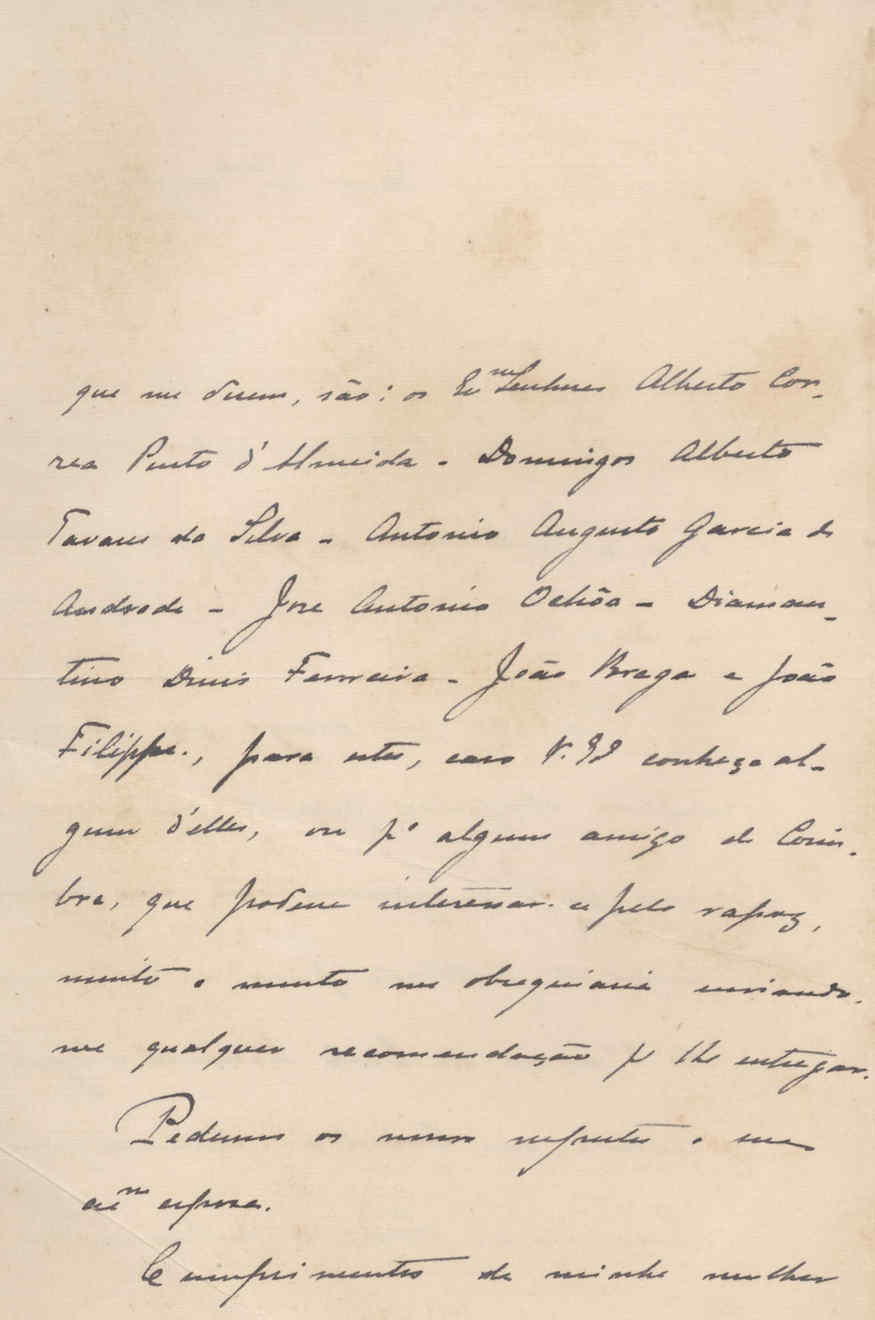 que me dizem, são: os Ex.mos Senhores Alberto Cor-
rea Pinto d'Almeida - Domingos Alberto
Tavares da Silva - Antonio Augusto Garcia de
Andrade - José Antonio Ochôa - Diaman-
tino Dinis Ferreira - João Braga e João
Filippe., para estes, caso V. Exª conheça al-
gum d'elles, ou pª algum amigo de Coim-
bra, que podesse interessar-se pelo rapaz,
muito e muito me obsequiaria enviando-
me qualquer recomendação pª lhe entregar.
Pedimos os nossos respeitos a sua
exma esposa.
Cumprimentos de minha mulher